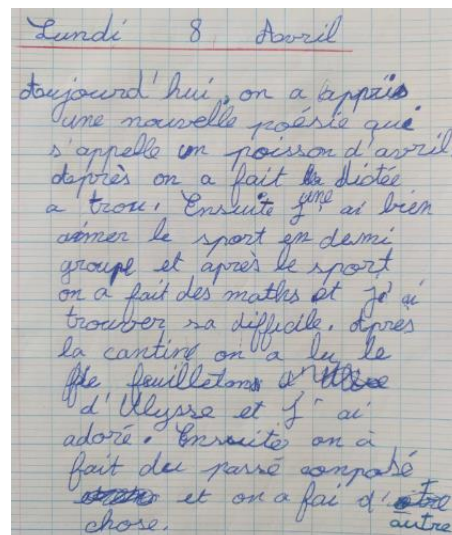 Lundi 8 Avril
Aujourd'hui, on a appris
une nouvelle poésie qui
s'appelle un poisson d'avril.
Après on a fait une dictée
a trou. Ensuite j'ai bien
aimer le sport en demi
groupe et après le sport
on a fait des maths et j'ai
trouver sa difficile. Après
la cantine on a lu le
feuilleton
d'Ulysse et j'ai
adoré. Ensuite on à
fait du passé composé
et on a fai d'autre
chose.